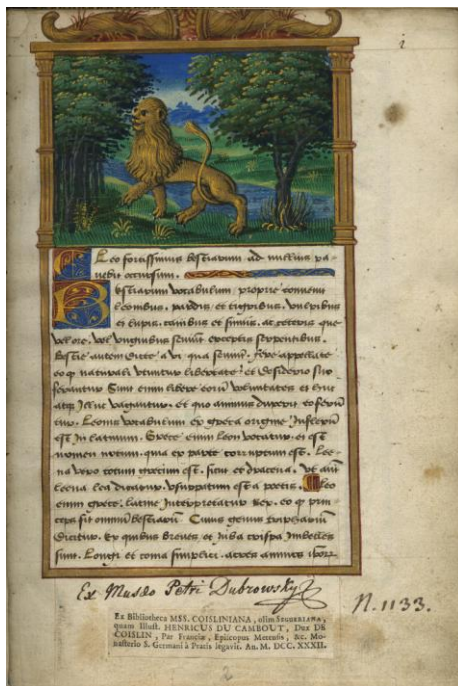 i
Leo fortissimus bestiarum ad nullius pa-
uebit occursum.
Bestiarum vocabulum proprie conueni
leonibus. pardis. et tigribus. vulpibus
et lupis. canibus et simiis. ac ceteris que
vel ore. vel vnguibus seuiūt exceptis serpentibus.
Bestie autem dicte a vi qua seuiūt. fere appellate
eo q naturali vtuntur libertate: et desiderio suo
ferantur Sunt enim libere eorū voluntates et huc
atq illuc vagantur. et quo animus duxerit eo ferū
tur. Leonis vocabulum ex greca origine inflexū
est in latinum. Grece enim leon vocatur. et est
nomen notum. quia ex parte corruptum est. Lee-
na vero totum grecum est. sicut et dracena. vt aūt
leena lea dicatur. vsurpatum est a poetis. Leo
enim grece: latine interpretatur Rex. eo q prin
ceps sit omniū bestiarū. Cuius genus tripharium
dicitur. Ex quibus breues et iuba crispa imbelles
sunt. Longi et coma simplici. acres animos
Ex Musæo Petri Dubrowsky
N. 1133.
Ex Bibliotheca MSS. COISLINIANA, olim SEGUERIANA,
quam Illust. HENRICUS DU CAMBOUT, Dux DE
COISLIN, Par Franciæ, Episcopus Metensis, &c. Mo-
nasterio S. Germani à Pratis legavit. An. M. DCC. XXXII.
2